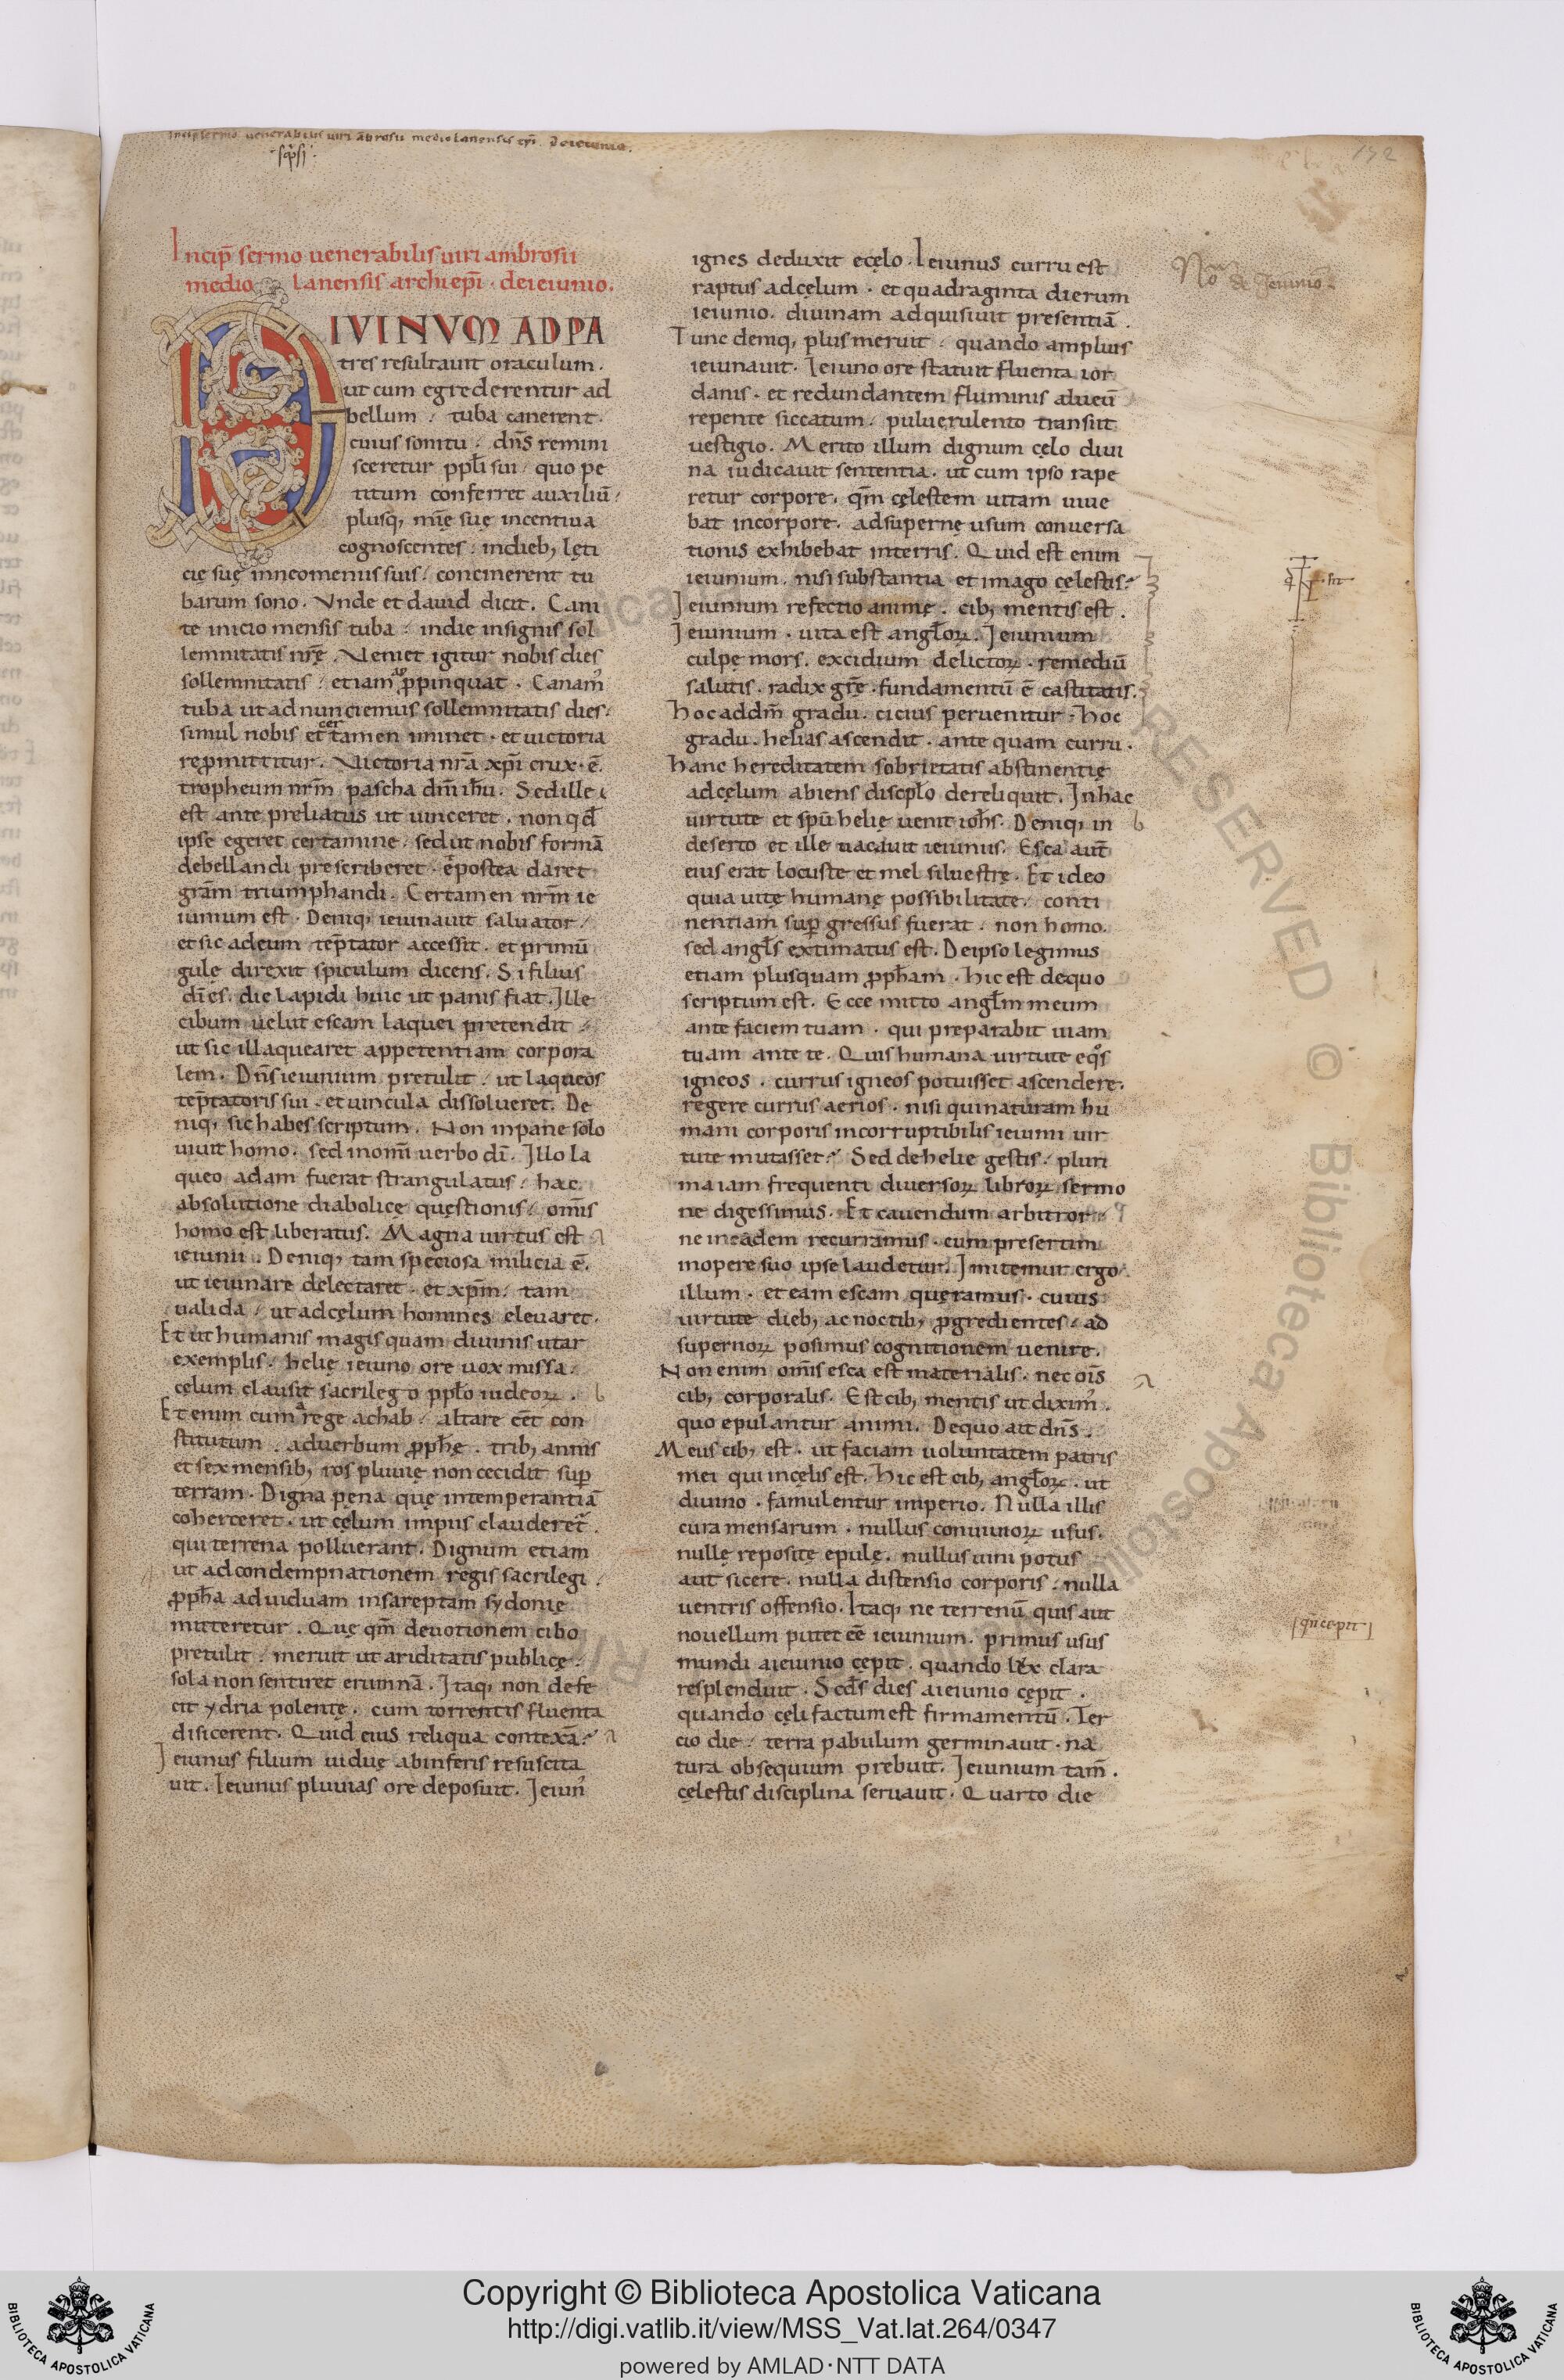 Incip̄ sermo uenerabilis uiri ambrosii mediolanensis ep̄i. De ieiunio.
172
Incip̄ sermo uenerabilis uiri ambrosii
mediolanensis archiep̄i · de ieiunio.
DIVINVM AD PA
tres resultauit oraculum.
ut cum egrederentur ad
bellum / tuba canerent.
cuius sonitu / dn̄s remini
sceretur ppl̄i sui / quo pe
titum conferret auxiliū /
plusq, mīę suę incentiua
cognoscentes / in dieb; lęti
cię suę inneomeniis suis / concinerent tu
barum sono. Vnde et dauid dicit. Cani
te inicio mensis tuba / indie insignis sol
lemnitatis nr̄ę. Veniet igitur nobis dies
sollemnitatis / etiam ꝓpinquat. Canam᷒
tuba ut adnunciemus sollemnitatis dies.
simul nobis et certamen iminet · et uictoria
repromittitur. Victoria nr̄a xp̄i crux · ē.
tropheum nr̄m pascha dn̄i ih̄u. Sed ille
est ante preliatus ut uinceret. non qđ
ipse egeret certamine / sed ut nobis formā
debellandi prescriberet · & postea daret
gr̄am triumphandi. Certamen nr̄m ie
iunium est. Deniq, ieiunauit saluator /
et sic ad eum tēptator accessit. et primū
gulę direxit spiculum dicens. Si filius
dī es. dic lapidi huic ut panis fiat. Ille
cibum uelut escam laquei pretendit /
ut sic illaquearet appetentiam corpora
lem. Dn̄s ieiunium pretulit / ut laqueos
tēptatoris sui · et uincula dissolueret. De
niq, sic habes scriptum. Non in pane solo
uiuit homo. sed in om̄i uerbo dī. Illo la
queo adam fuerat strangulatus / hac
absolutione diabolicę questionis / om̄is
homo est liberatus. Magna uirtus est
ieiunii. Deniq, tam speciosa milicia ē.
ut ieiunare delectaret · et xp̄m / tam
ualida / ut ad cęlum homines eleuaret.
Et ut humanis magis quam diuinis utar
exemplis / helię ieiuno ore uox missa /
cęlum clausit sacrilego ppl̄o iudeoꝝ.
Etenim cum a rege achab / altare eēt con
stitutum / ad uerbum ꝓph̄ę. trib; annis
et sex mensib; ros pluuię non cecidit sup̄
terram. Digna pęna quę intemperantiā
coherceret · ut cęlum impiis clauderet᷒.
qui terrena polluerant. Dignum etiam
ut ad condempnationem regis sacrilegi /
ꝓph̄a ad uiduam in sareptam sydonię
mitteretur. Quę qm̄ deuotionem cibo
pretulit / meruit ut ariditatis publicę /
sola non sentiret erumnā. Itaq, non defe
cit ydria polentę. cum torrentis fluenta
disicerent. Quid eius reliqua contexā?
Ieiunus filium uiduę ab inferis resuscita
uit. Ieiunus pluuias ore deposuit. Ieiun᷒
ignes deduxit e cęlo. Ieiunus curru est
raptus ad cęlum · et quadraginta dierum
ieiunio. diuinam adquisiuit presentiā.
Tunc deniq, plus meruit / quando amplius
ieiunauit. Ieiuno ore statuit fluenta ior
danis · et redundantem fluminis alueū
repente siccatum / puluerulento transiit
uestigio. Merito illum dignum cęlo diui
na iudicauit sententia. ut cum ipso rape
retur corpore. qm̄ cęlestem uitam uiue
bat in corpore. ad supernę usum conuersa
tionis exhibebat in terris. Quid est enim
ieiunium. nisi substantia et imago cęlestis?
Ieiunium refectio animę. cib; mentis est.
Ieiunium · uita est angl̄oꝝ. Ieiunium
culpę mors. excidium delictoꝝ · remediū
salutis. radix gr̄ę · fundamentū ē castitatis.
Hoc ad dm̄ gradu. cicius peruenitur. Hoc
gradu. helias ascendit. ante quam curru.
Hanc hereditatem sobrietatis abstinentię
ad cęlum abiens discipl̄o dereliquit. In hac
uirtute et sp̄u helię uenit ioh̄s. Deniq, in
deserto et ille uacauit ieiunus. Esca aut̄
eius erat locuste et mel siluestrę. Et ideo
quia uitę humanę possibilitate / conti
nentiam sup̄gressus fuerat. non homo.
sed angl̄s extimatus est. De ipso legimus
etiam plusquam ꝓph̄am. hic est de quo
scriptum est. Ecce mitto angl̄m meum
ante faciem tuam · qui preparabit uiam
tuam ante te. Quis humana uirtute eqōs
igneos. currus igneos potuisset ascendere.
regere currus aerios. nisi qui naturam hu
mani corporis incorruptibilis ieiunii uir
tute mutasset? Sed de helie gestis / pluri
ma iam frequenti diuersoꝝ libroꝝ sermo
ne digessimus. Et cauendum arbitror /
ne in eadem recurramus. cum presertim
in opere suo ipse laudetur. Imitemur ergo
illum · et eam escam quęramus. cuius
uirtute dieb; ac noctib; ꝓgredientes / ad
supernoꝝ posimus cognitionem uenire.
Non enim om̄is esca est materialis. nec oīs
cib; corporalis. Est cib; mentis ut dixim᷒.
quo epulantur animi. De quo ait dn̄s.
Meus cib; est. ut faciam uoluntatem patris
mei qui in cęlis est. Hic est cib; angl̄oꝝ. ut
diuino · famulentur imperio. Nulla illis
cura mensarum · nullus conuiuioꝝ usus.
nullę repositę epulę. nullus uini potus
aut sicere. nulla distensio corporis / nulla
uentris offensio. Itaq, ne terrenū quis aut
nouellum putet eē ieiunium. primus usus
mundi a ieiunio cępit. quando lux clara
resplenduit. Scđs dies a ieiunio cępit.
quando cęli factum est firmamentū. Ter
cio die / terra pabulum germinauit · na
tura obsequium prebuit. Ieiunium tam̄.
cęlestis disciplina seruauit. Quarto die
No de Jeiunio
Copyright © Biblioteca Apostolica Vaticana
http://digi.vatlib.it/view/MSS_Vat.lat.264/0347
powered by AMLAD·NTT DATA
BIBLIOTECA APOSTOLICA VATICANA
BIBLIOTECA APOSTOLICA VATICANA